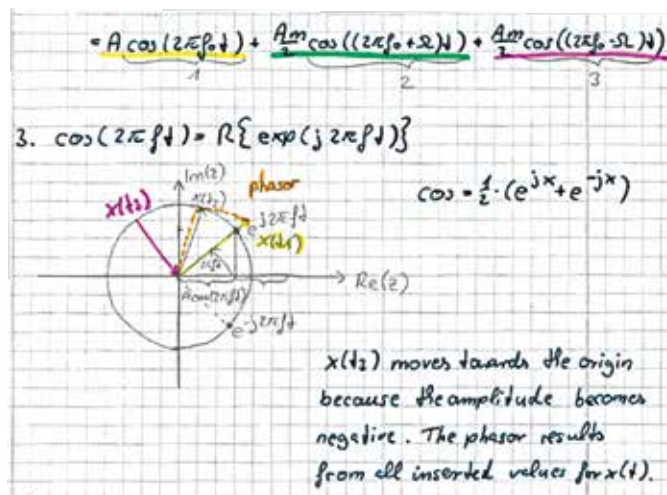 = A cos(2πf₀t) + Am/2 cos((2πf₀+Ω)t) + Am/2 cos((2πf₀-Ω)t)
1 2 3
3. cos(2πft) = R{exp(j2πft)}
Im(z)
x(t₂) phasor
cos = 1/2 · (e^jx + e^-jx)
x(t₃)
e^j2πft
x(t₁)
2πft
Re(z)
A cos(2πft)
e^-j2πft
x(t₃) moves towards the origin
because the amplitude becomes
negative. The phasor results
from all inserted values for x(t).